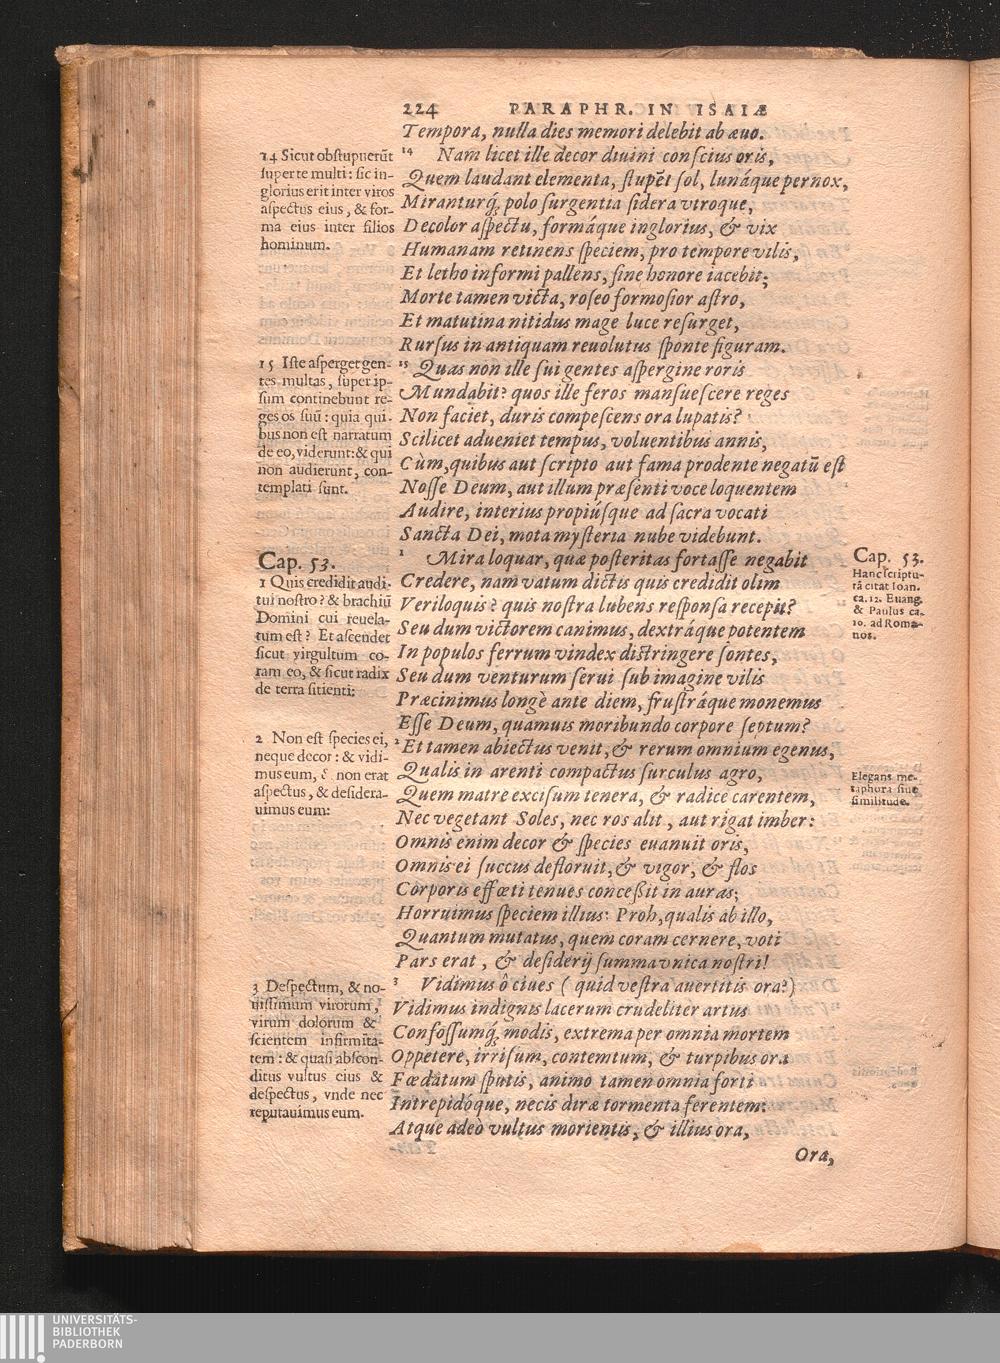 224 PARAPHR. IN ISAIÆ
Tempora, nulla dies memori delebit ab æuo.
14 Nam licet ille decor diuini conſcius oris,
Quem laudant elementa, ſtupēt ſol, lunáque pernox,
Miranturq́; polo ſurgentia ſidera vtroque,
Decolor aſpectu, formáque inglorius, & vix
Humanam retinens ſpeciem, pro tempore vilis,
Et letho informi pallens, ſine honore iacebit;
Morte tamen victa, roſeo formoſior aſtro,
Et matutina nitidus mage luce reſurget,
Rurſus in antiquam reuolutus ſponte figuram.
15 Quas non ille ſui gentes aſpergine roris
Mundabit? quos ille feros manſueſcere reges
Non faciet, duris compeſcens ora lupatis?
Scilicet adueniet tempus, voluentibus annis,
Cùm, quibus aut ſcripto aut fama prodente negatū eſt
Noſſe Deum, aut illum præſenti voce loquentem
Audire, interius propiúſque ad ſacra vocati
Sancta Dei, mota myſteria nube videbunt.
1 Mira loquar, quæ poſteritas fortaſſe negabit
Credere, nam vatum dictis quis credidit olim
Veriloquis? quis noſtra lubens reſponſa recepit?
Seu dum victorem canimus, dextráque potentem
In populos ferrum vindex diſtringere ſontes,
Seu dum venturum ſerui ſub imagine vilis
Præcinimus longè ante diem, fruſtráque monemus
Eſſe Deum, quamuis moribundo corpore ſeptum?
2 Et tamen abiectus venit, & rerum omnium egenus,
Qualis in arenti compactus ſurculus agro,
Quem matre exciſum tenera, & radice carentem,
Nec vegetant Soles, nec ros alit, aut rigat imber:
Omnis enim decor & ſpecies euanuit oris,
Omnis ei ſuccus defloruit, & vigor, & flos
Corporis effœti tenues conceßit in auras;
Horruimus ſpeciem illius: Proh, qualis ab illo,
Quantum mutatus, quem coram cernere, voti
Pars erat, & deſiderij ſumma vnica noſtri!
3 Vidimus ô ciues ( quid veſtra auertitis ora?)
Vidimus indignis lacerum crudeliter artus
Confoſſumq́; modis, extrema per omnia mortem
Oppetere, irriſum, contemtum, & turpibus ora
Fœdatum ſputis, animo tamen omnia forti
Intrepidóque, necis diræ tormenta ferentem:
Atque adeò vultus morientis, & illius ora,
Ora,
14 Sicut obſtupuerūt
ſuper te multi: ſic in-
glorius erit inter viros
aſpectus eius, & for-
ma eius inter filios
hominum.
15 Iſte aſperget gen-
tes multas, ſuper ip-
ſum continebunt re-
ges os ſuū: quia qui-
bus non eſt narratum
de eo, viderunt: & qui
non audierunt, con-
templati ſunt.
Cap. 53.
1 Quis credidit audi-
tui noſtro? & brachiū
Domini cui reuela-
tum eſt? Et aſcendet
ſicut virgultum co-
ram eo, & ſicut radix
de terra ſitienti:
2 Non eſt ſpecies ei,
neque decor: & vidi-
mus eum, & non erat
aſpectus, & deſidera-
uimus eum:
3 Deſpectum, & no-
uiſſimum virorum,
virum dolorum &
ſcientem infirmita-
tem: & quaſi abſcon-
ditus vultus eius &
deſpectus, vnde nec
reputauimus eum.
Cap. 53.
Hanc ſcriptu-
rā citat Ioan.
ca. 12. Euang.
& Paulus ca.
10. ad Roma-
nos.
Elegans me-
taphora ſiue
ſimilitudo.
UNIVERSITÄTS-
BIBLIOTHEK
PADERBORN